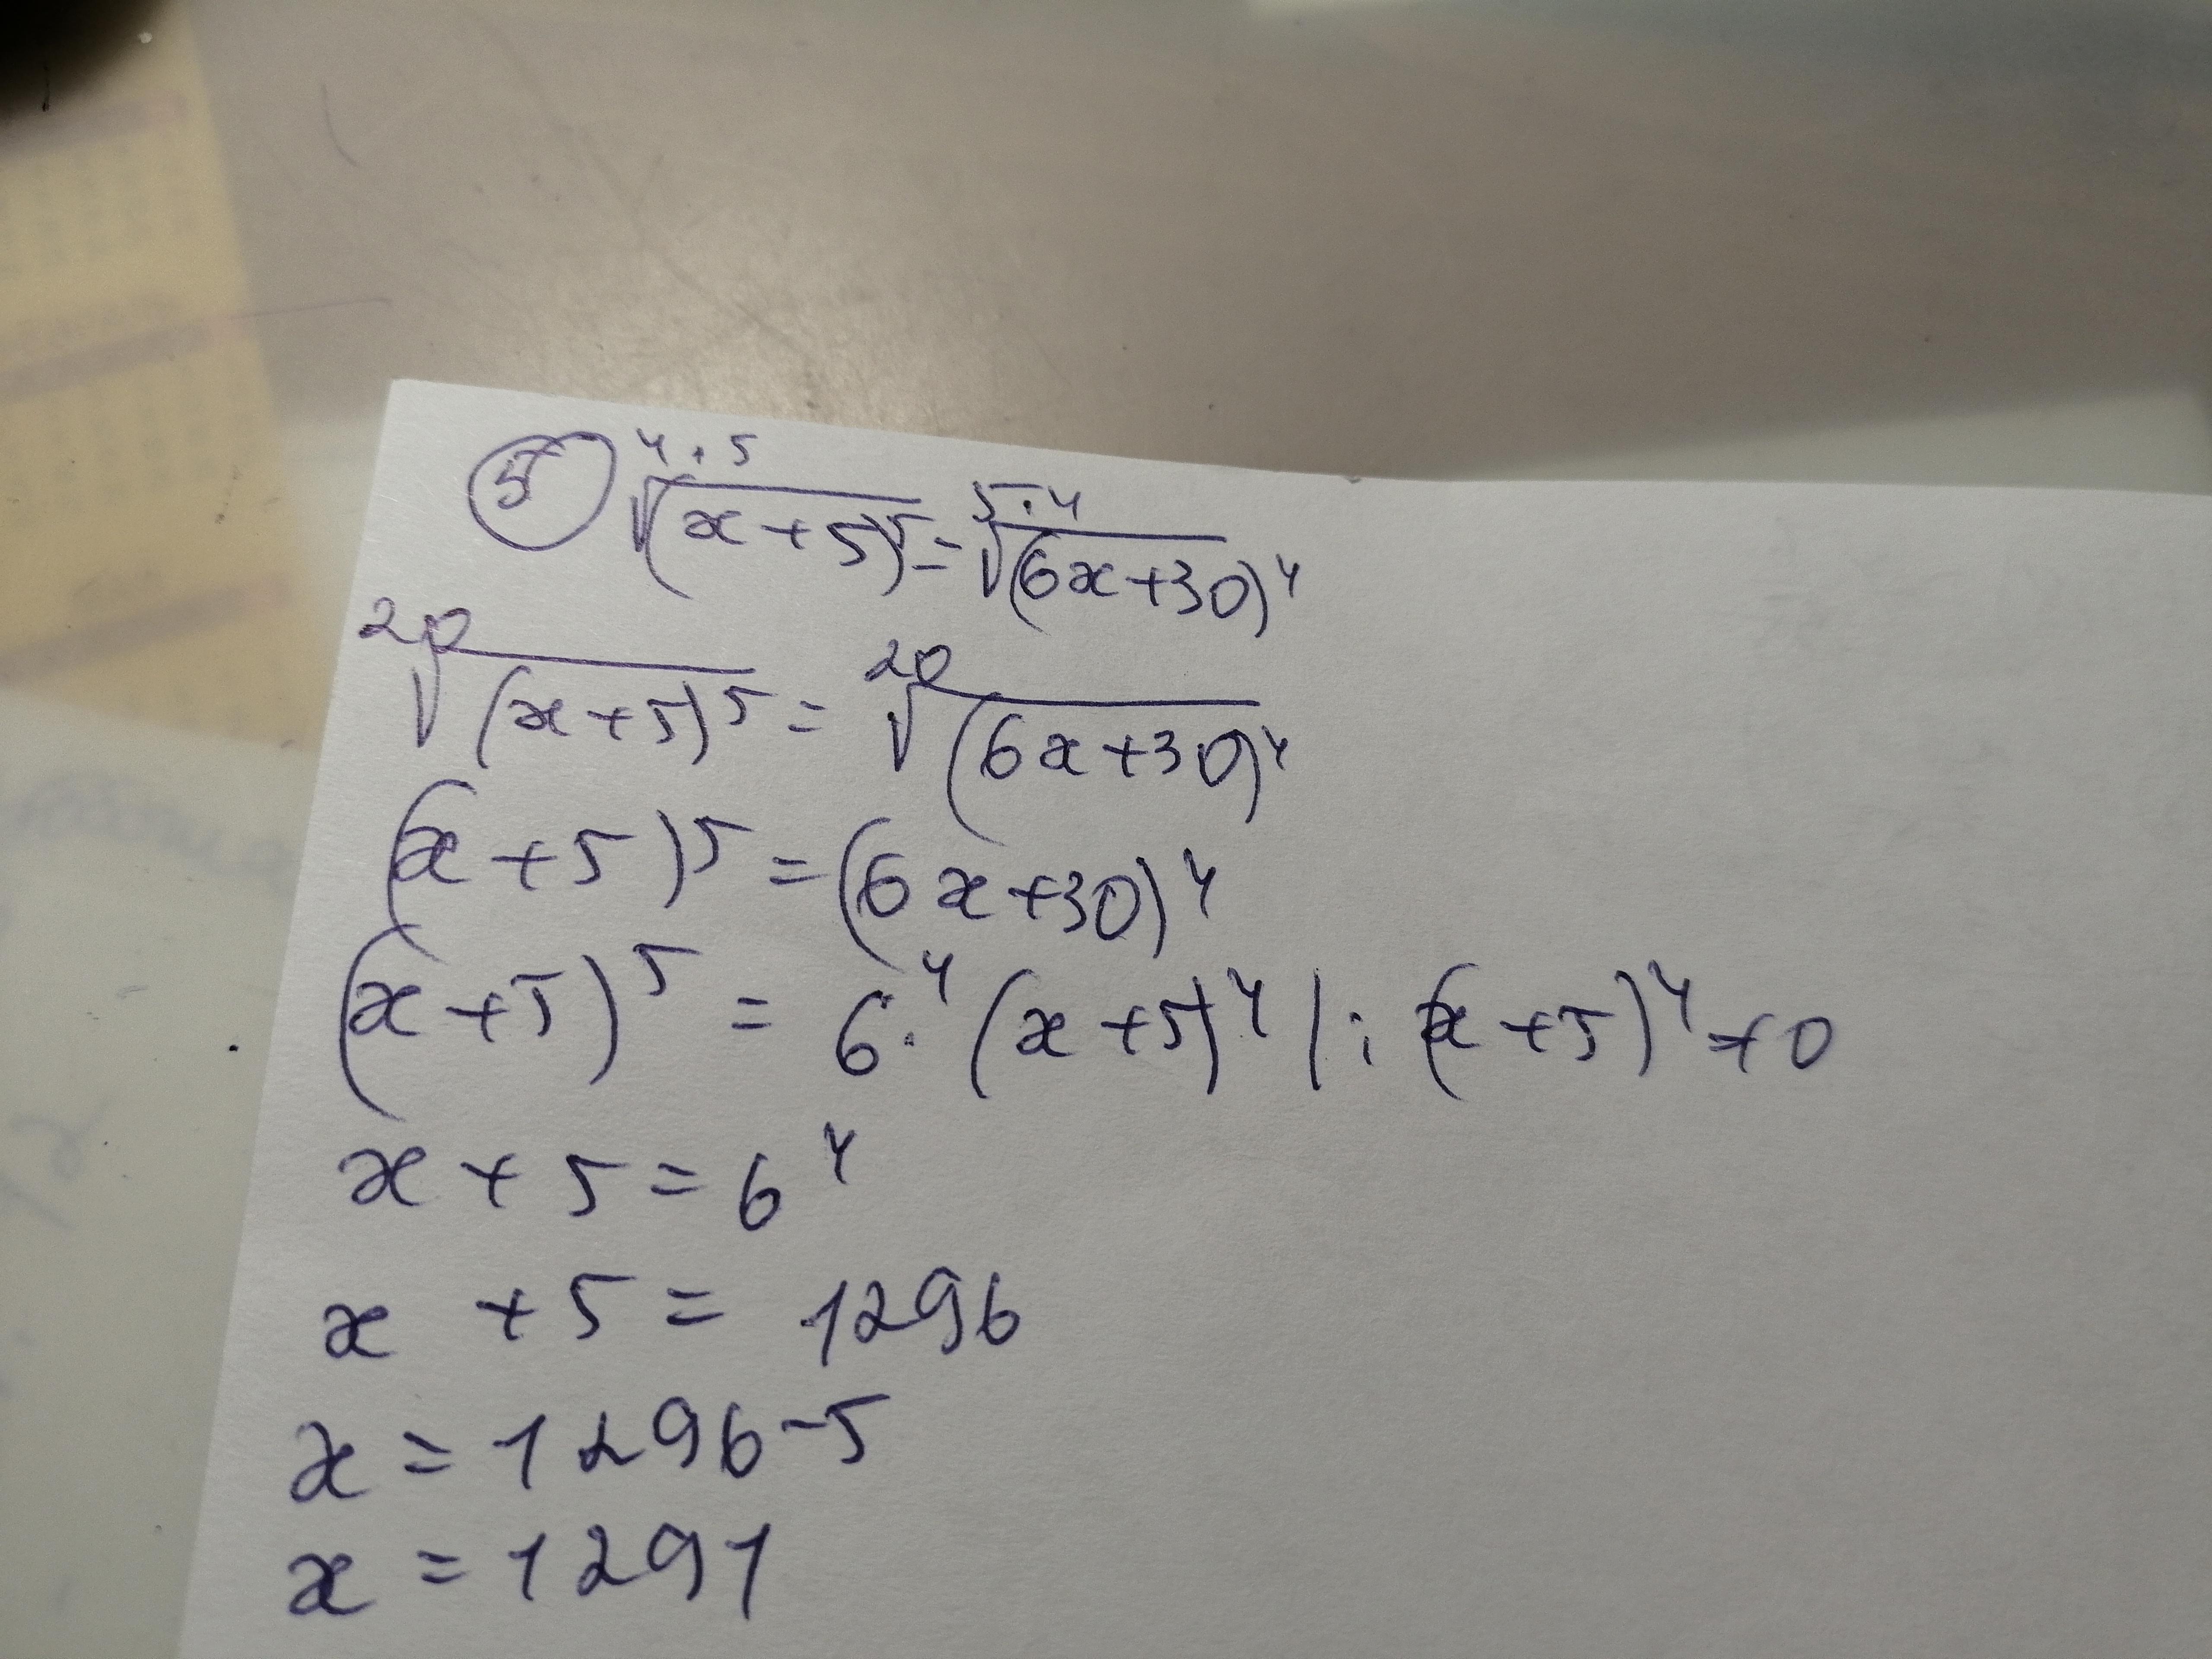 5 ⁴·⁵√(x+5)⁵ = ⁵·⁴√(6x+30)⁴
²⁰√(x+5)⁵ = ²⁰√(6x+30)⁴
(x+5)⁵ = (6x+30)⁴
(x+5)⁵ = 6⁴·(x+5)⁴ | : (x+5)⁴ ≠ 0
x + 5 = 6⁴
x + 5 = 1296
x = 1296-5
x = 1291